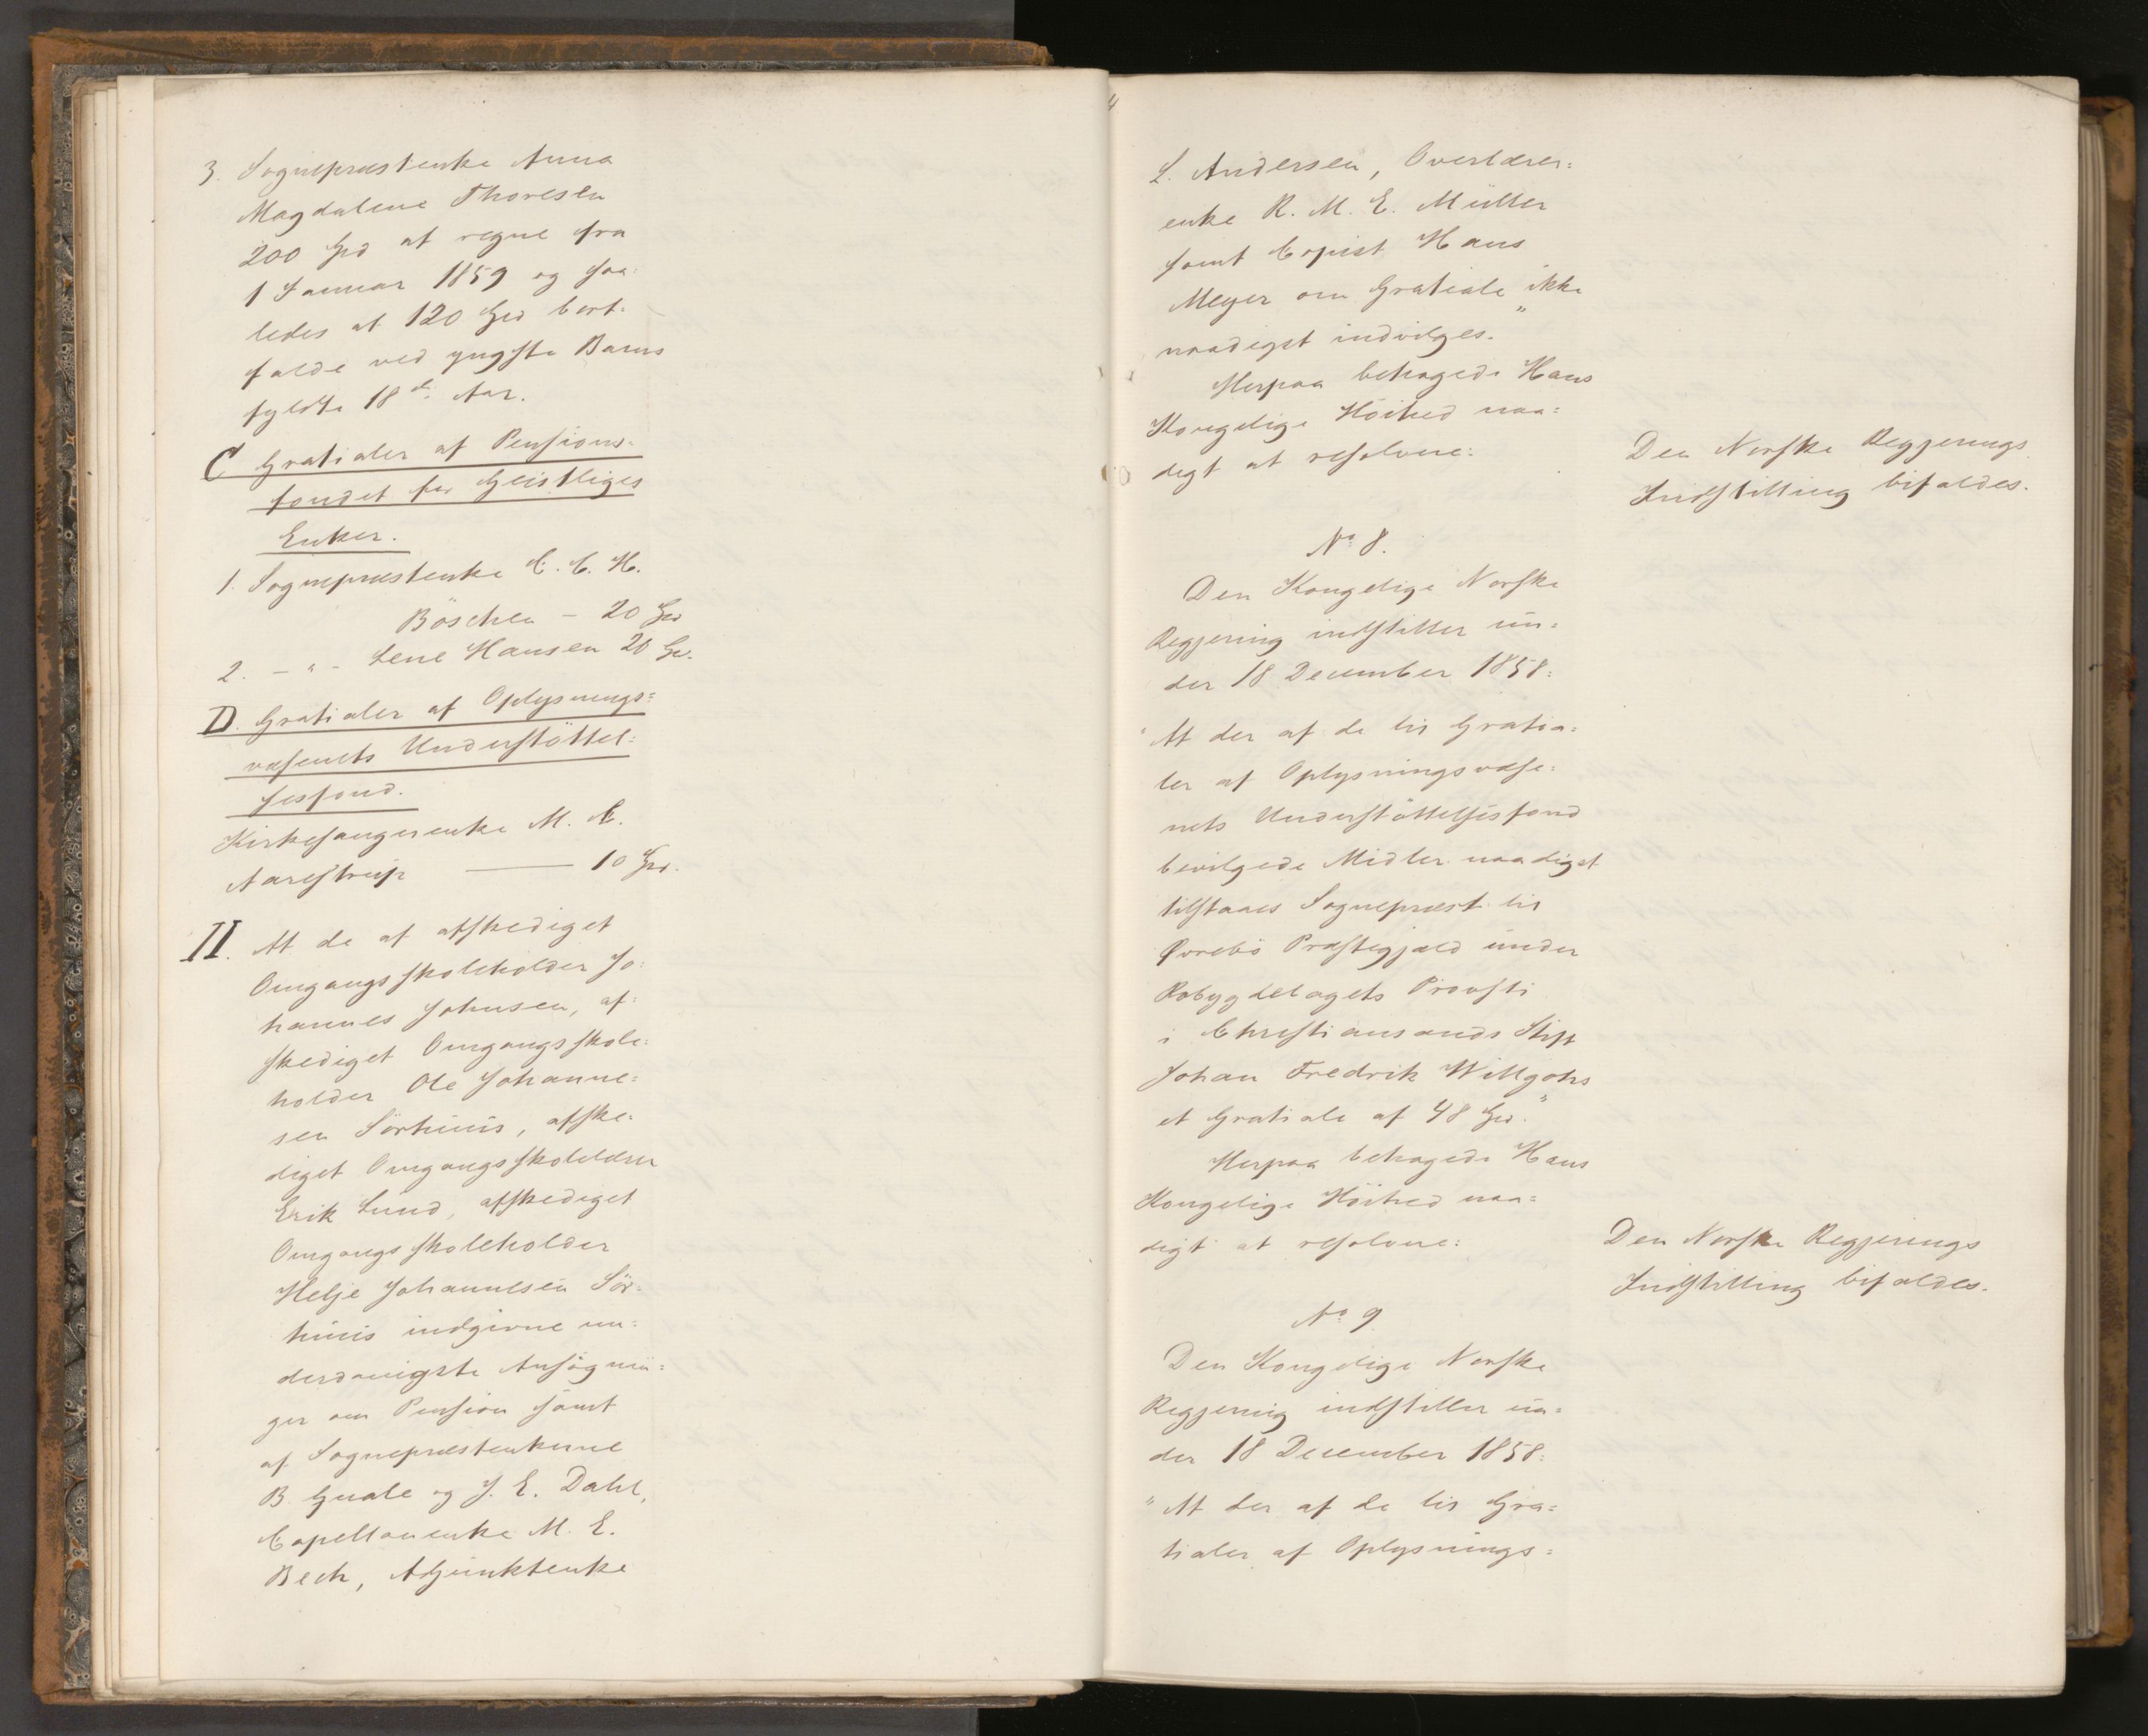 3. Sognepræstenke Anna
Magdalene Thoresen
200 Spd at regne fra
1 Januar 1859 og saa-
ledes at 120 Spd bort-
falde ved yngste Barns
fyldte 18de Aar.
C Gratialer af Pensions-
fondet for Geistliges
Enker.
1. Sognepræstenke C. C. H.
Böschen - 20 Spd
2. - " - Lene Hansen 20 Spd.
D. Gratialer af Oplysnings=
væsenets Understöttel=
sesfond.
Kirkesangerenke M. C.
Aarestrup — 10 Spd.
II. At de af afskediget
Omgangsskoleholder Jo-
hannes Johnsen, af=
skediget Omgangsskole-
holder Ole Johanne=
sen Sörhuus, afske-
diget Omgangsskolelærer
Erik Lund, afskediget
Omgangsskoleholder
Helje Johannesen Sör-
huus indgivne un-
derdanigste Ansögnin=
ger om Pension samt
af Sognepræstenkerne
B. Quale og J. E. Dahl,
Capellanenke M. E.
Bech, Adjunktenke
L. Andersen, Overlærer=
enke R. M. E. Müller
samt Copist Hans
Meyer om Gratiale ikke
naadigst indvilges."
Herpaa behagede Hans
Kongelige Höihed naa=
digt at resolvere:
Den Norske Regjerings
Indstilling bifaldes.
No 8.
Den Kongelige Norske
Regjering indstiller un=
der 18 December 1858:
"At der af de til Gratia=
ler af Oplysningsvæse=
nets Understöttelsesfond
bevilgede Midler naadigst
tilstaaes Sognepræst til
Øvrebö Præstegjæld under
Robygdelagets Provsti
i Christiansands Stift
Johan Fredrik Willgohs
et Gratiale af 48 Spd."
Herpaa behagede Hans
Kongelige Höihed naa=
digt at resolvere:
Den Norske Regjerings
Indstilling bifaldes.
No 9
Den Kongelige Norske
Regjering indstiller un=
der 18 December 1858:
"At der af de til Gra=
tialer af Oplysnings=